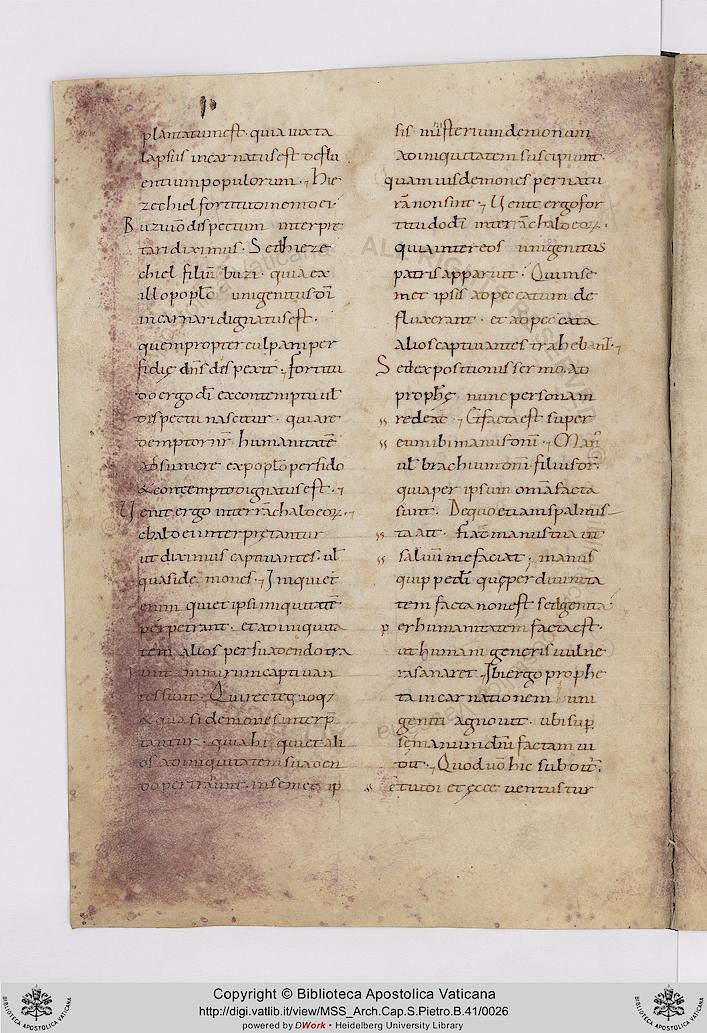 plantatum est · quia iuxta
lapsus incarnatus est deflu
entium populorum · Hie
zechiel fortitudinem dei
Buzi uō dispectum interpre
tari diximus · Sed hieze
chiel filiū buzi · quia ex
illo poplō unigenitus dī
incarnari dignatus est ·
quem propter culpam per
fidię dn̄s dispexit · fortitu
do ergo dī ex contemptu ul̄
dispectu nascitur · quia re
demptor nr̄ humanitatē
adsumere ex poplō perfido
& contempto dignatus est ·
Uenit ergo in terrā chaldeoꝝ ·
chaldei interpretantur
ut diximus captiuantes · ul̄
quasi demones · Iniqui et
enim qui et ipsi iniquitatē
perpetrant · et ad iniquita
tem alios persuadendo tra
hunt · nimirum captiuan
tes sunt · Qui recte quoq;
& quasi demones interp̄
tantur · quia hi qui et ali
os ad iniquitatem suaden
do pertrahunt · in semet ip
sis misterium demonum
ad iniquitatem suscipiunt ·
quamuis demones per natu
rā non sint · Uenit ergo for
titudo dī in terrā chaldeoꝝ ·
quia inter eos unigenitus
patris apparuit · Qui in se
met ipsis ad peccatum de
fluxerant · et ad peccata
alios captiuantes trahebant ·
Sed expositionis sermo · ad
prophę nunc personam
redeat · Et facta est super
eum ibi manus dnī · Man
ul̄ brachium dnī filius dr̄ ·
quia per ipsum omā facta
sunt · De quo etiam psalmis
ta ait · fiat manus tua ut
saluū me faciat · manus
quippe dī quę per diuinita
tem facta non est sed genita ·
per humanitatem facta est ·
ut humani generis uulne
ra sanaret · Ibi ergo prophe
ta incarnationem uni
geniti agnouit · ubi sup̄
se manum dnī factam ui
dit · Quod uō hic subdit ·
Et uidi et ecce uentus tur